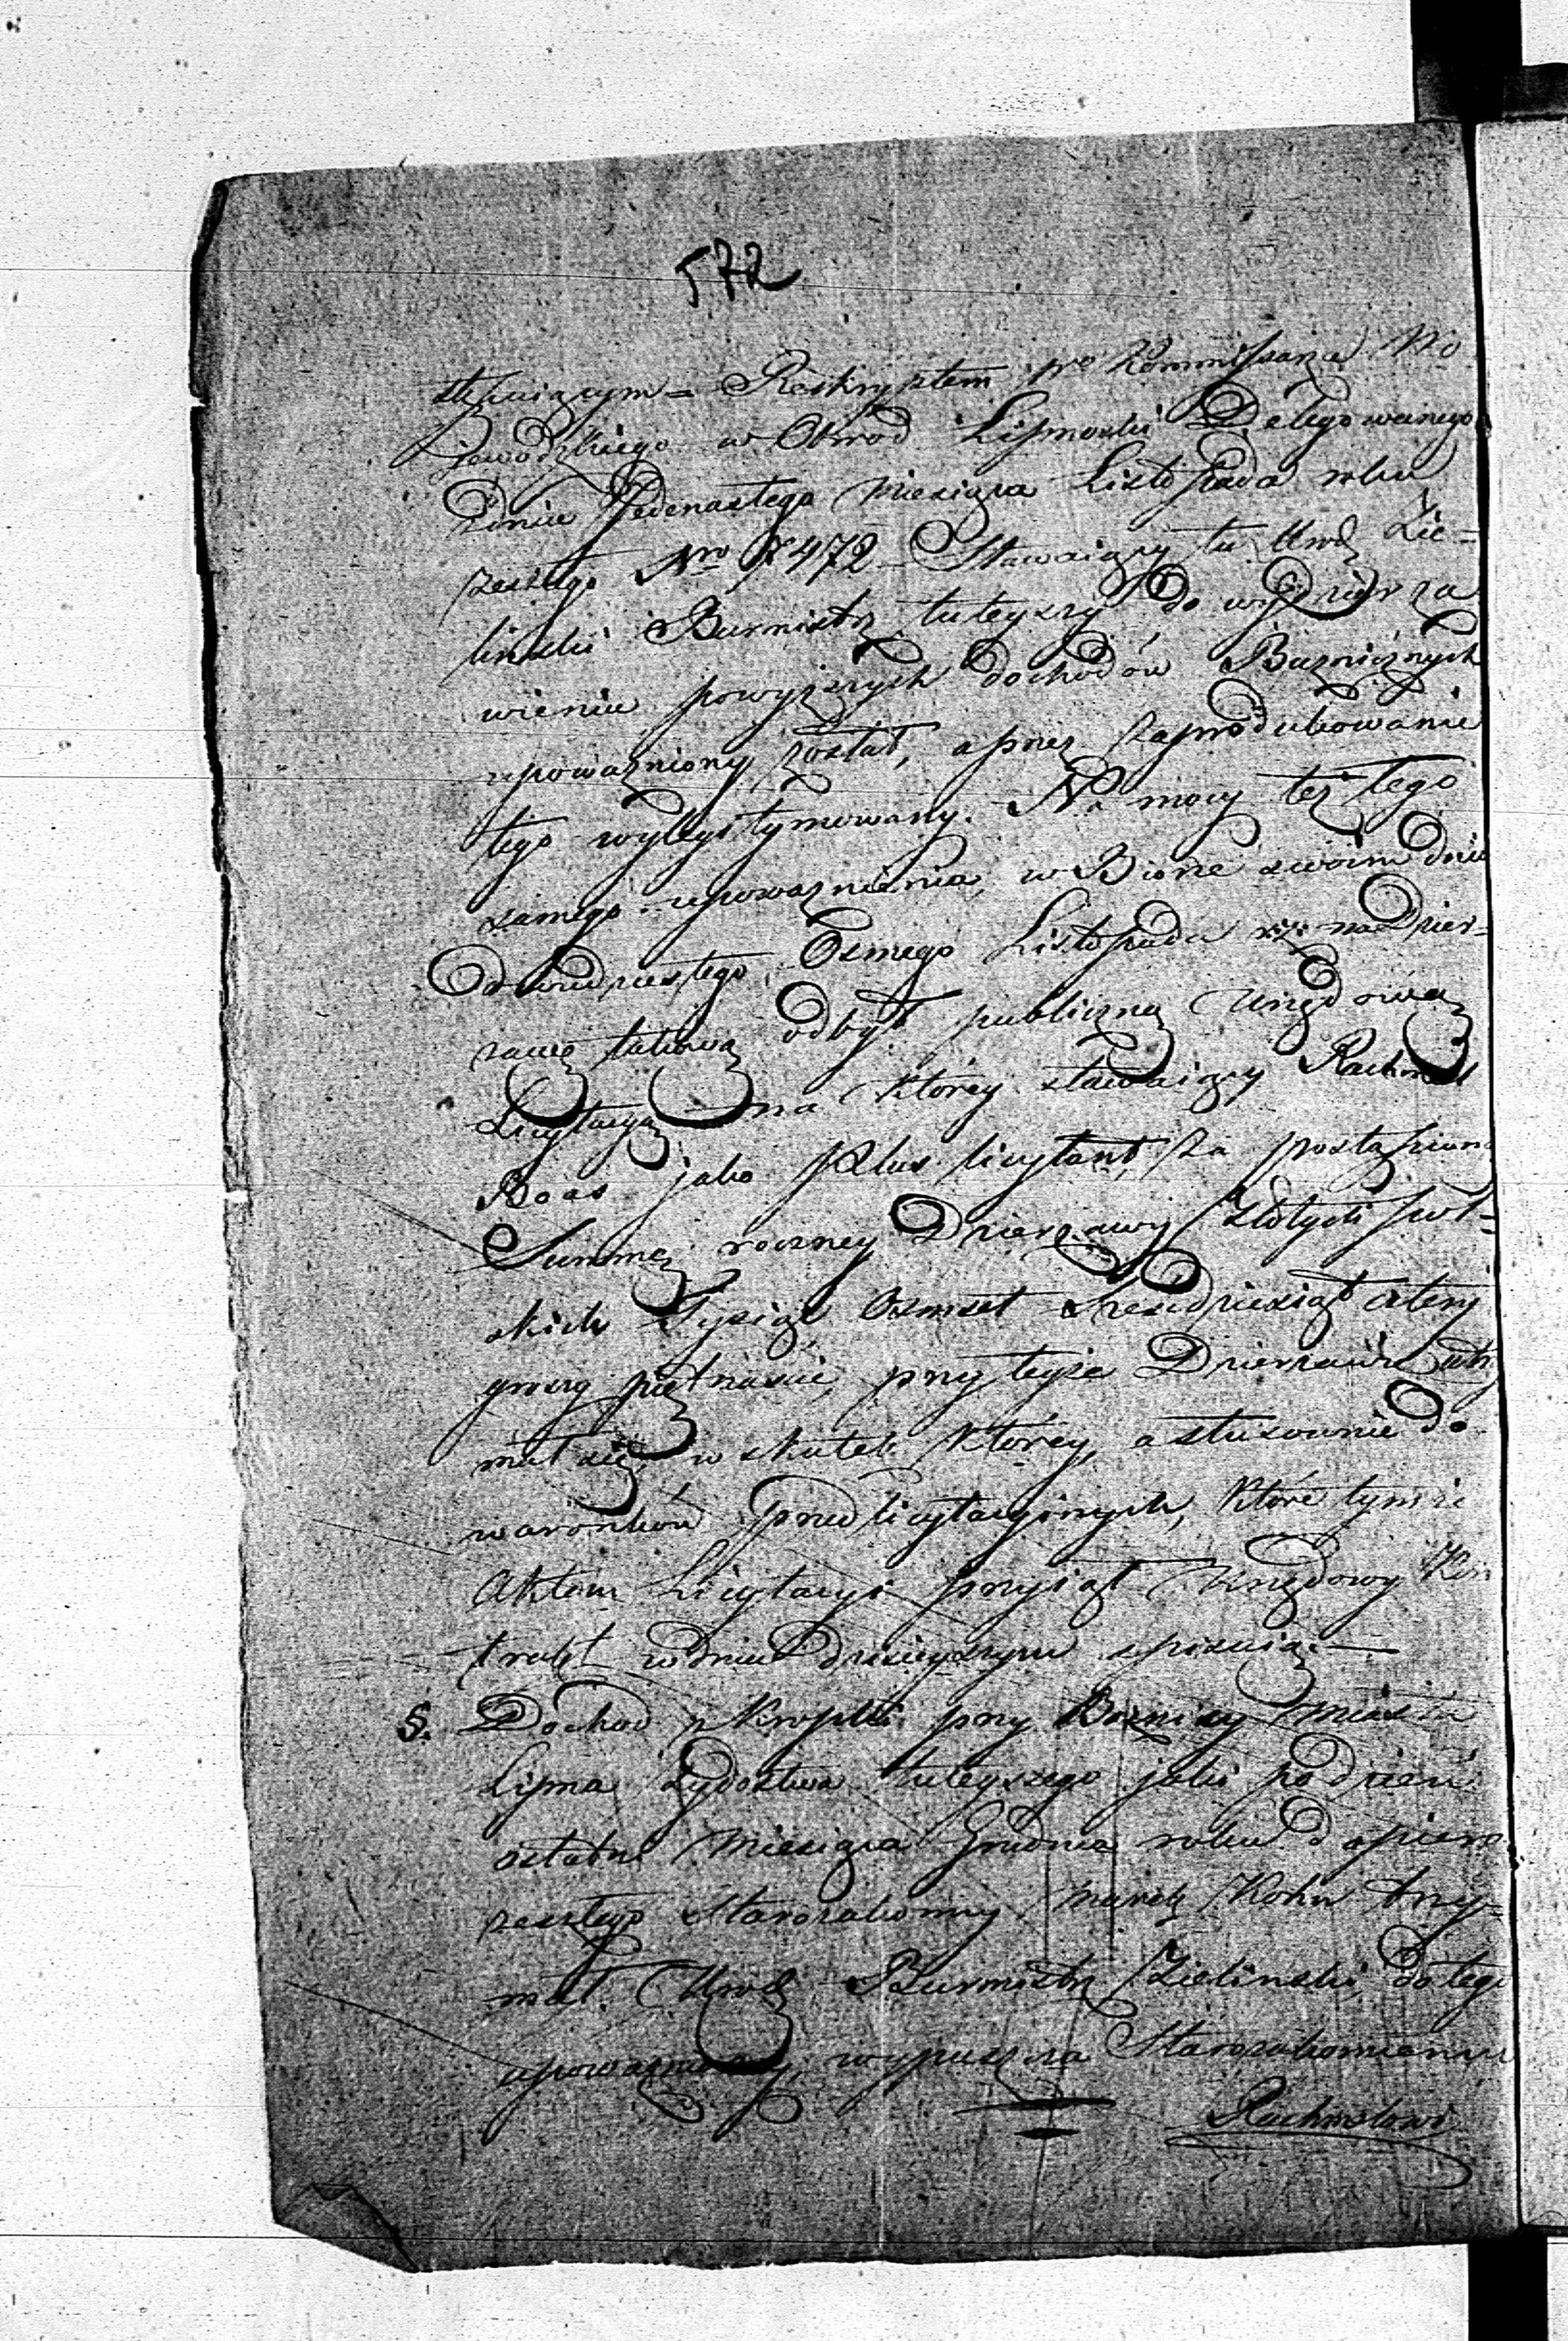 572
stępuiącym = Reskryptem Wo Kommissarza Wo
jewodzkiego w Obwod Lipnoski Delegowanego
Dniu Jedenastego Miesiąca Listopada roku
zeszłego Nro 7472 – Stawaiący tu Urod Zie=
linski Burmistrz tuteyszy do wydzierża
wieniu powyższych dochodów Bużnicznych
upoważniony został, a przez zaprodukowanie
tego wylegitymowany. Na mocy też tego
samego upoważnienia, w Biorze swoim dnia
Dwudziestego Osmego Listopada na Dzier=
żawę takową odbył publiczną Urzędową
Licytacyą – na którey stawaiący Rachmel
Boas jako Plus licytant, za postąpioną
Summę roczney Dzierzawy Złotych Pol=
skich Tysiąc Osmset Szescdziesiąt cztery
groszy piętnascie, przy teyże Dzierzawie utrzy
mał się, w skutek którey, a stosownie do
waronków przedlicytacyinych, które tymże
Aktem Licytacyi przyiął Urzędowy Kon
trakt w dniu dzisieyszym spisuią. –
§. Dochod z Kropki przy Bożnicy miasta
Lipna Żydostwa tuteyszego jaki po dzień
ostatni Miesiąca Grudnia roku dopiero
zeszłego Starozakonny Marek Kohn trzy=
mał. Urod Burmistrz Zielinski, do tego
upoważniony, wypuszcza Starozakonnemu
Rachmelowi